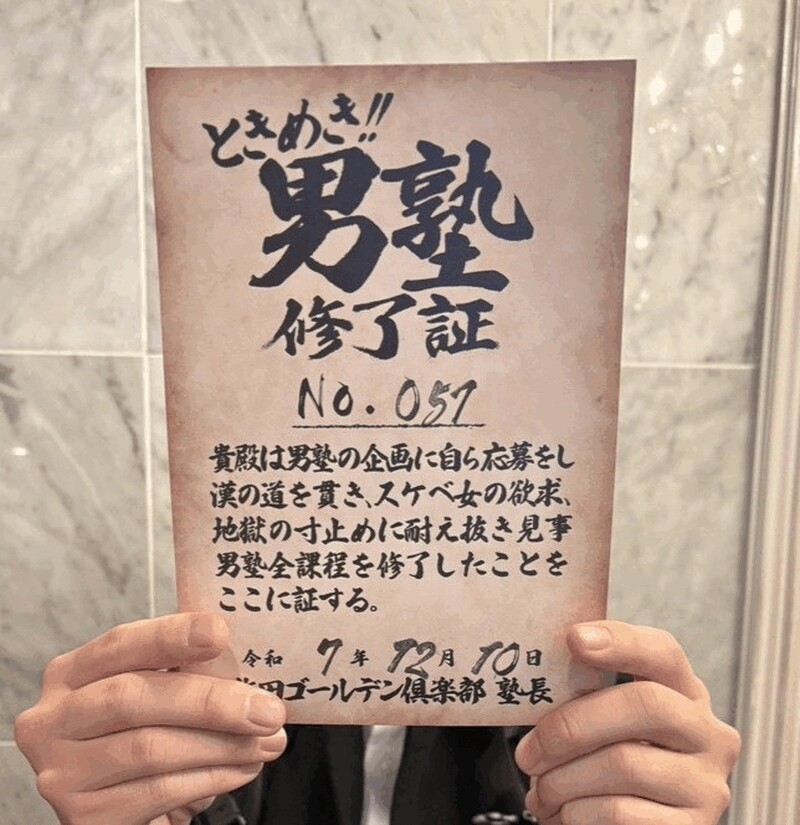 ときめき!!
男塾
修了証
No. 057
貴殿は男塾の企画に自ら応募をし
漢の道を貫き、スケベ女の欲求、
地獄の寸止めに耐え抜き見事
男塾全課程を修了したことを
ここに証する。
令和 7年 12月 10日
田ゴールデン倶楽部 塾長